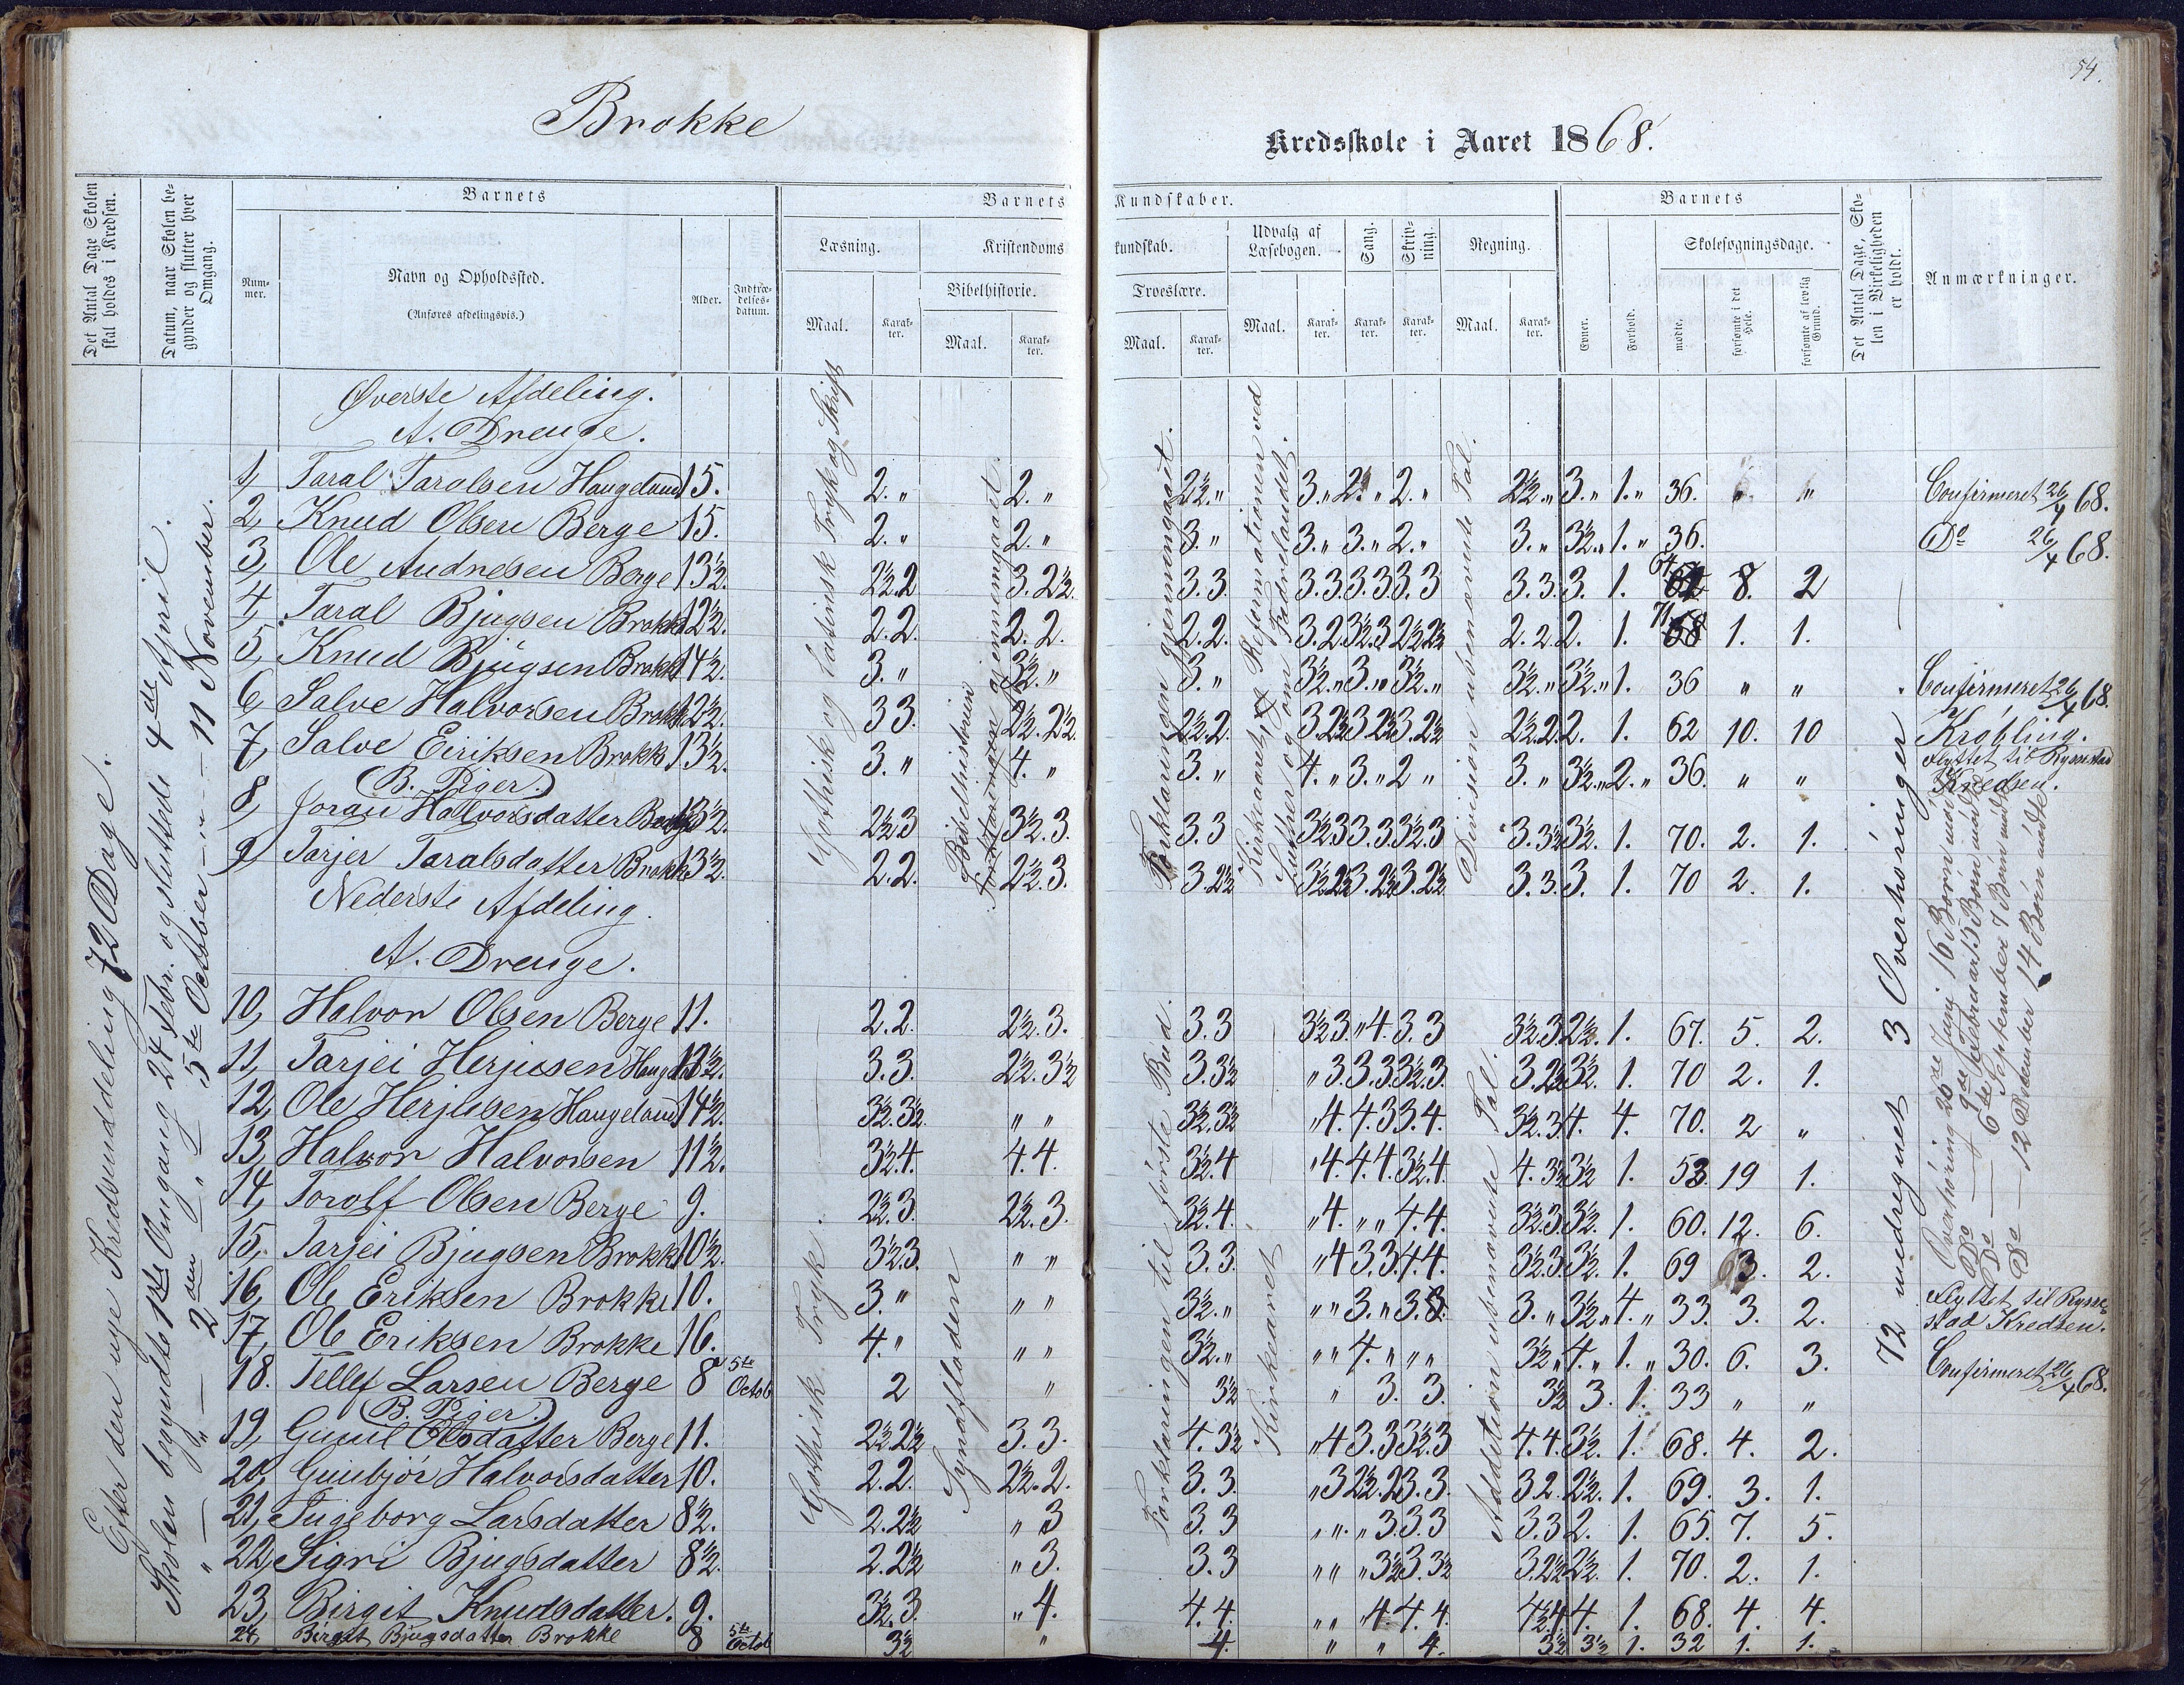 54.
Brokke
Kredsskole i Aaret 1868.
Det Antal Dage Skolen skal holdes i Kredsen.
Datum, naar Skolen begynder og slutter hver Omgang.
Barnets
Nummer.
Navn og Opholdssted.
(Anføres afdelingsvis.)
Alder.
Indtrædelsesdatum.
Barnets Kundskaber.
Læsning.
Maal. Karakter.
Kristendomskundskab.
Bibelhistorie.
Maal. Karakter.
Troeslære.
Maal. Karakter.
Udvalg af Læsebogen.
Maal. Karakter.
Sang.
Karakter.
Skrivning.
Karakter.
Regning.
Maal. Karakter.
Barnets
Evner.
Forhold.
Skolesøgningsdage.
mødte.
forsømte i det Hele.
forsømte af lovlig Grund.
Det Antal Dage, Skolen i Virkeligheden er holdt.
Anmærkninger.
Efter den nye Kredsinddeling 72 Dage.
Skolen begyndte 1ste Omgang 24 Febr. og sluttede 4de April.
" — " — 2den " 5te October — " — 11 November.
Gothisk og Latinsk Tryk og Skrift
Bibelhistorien gjennemgaaet.
Forklaringen gjennemgaaet.
Kirkeaaret, Reformationen ved Luther og om Fædrelandet.
Division ubenævnte Tal.
Gothisk Tryk.
Syndfloden
Forklaringen til første Bud.
Kirkeaaret
Addition ubenævnte Tal.
72 medregnet 3 Overhøringer.
Overhøring 26de Juny 16 Børn mødt
Do — 9de Februar 15 Børn mødt
Do — 6te September 7 Børn mødt
Do — 12 December 14 Børn mødte
Øverste Afdeling.
A. Drenge.
1, Taral Taralsen Haugeland 15. 2. " 2. " 2½. " 3. " 2. " 2. " 2½. " 3. " 1. " 36. " " Confirmeret 26/4 68.
2, Knud Olsen Berge 15. 2. " 2. " 3. " 3. " 3. " 2. " 3. " 3½. " 1. " 36. Do 26/4 68.
3, Ole Andresen Berge 13½. 2½. 2 3. 2½. 3. 3. 3. 3. 3. 3. 3. 3 3. 3. 3. 1. 64 8. 2
4, Taral Bjugsen Brokke 12½. 2. 2. 2. 2. 2. 2. 3. 2. 3½. 3 2½. 2½ 2. 2. 2. 1. 71 1. 1.
5, Knud Bjugsen Brokke 14½. 3. " 3½. " 3. " 3½. " 3. " 3½. " 3½. " 3½. " 1. 36 " " Confirmeret 26/4 68.
6, Salve Halvorsen Brokke 12½. 3 3. 2½. 2½. 2½. 2. 3. 2½ 3. 2½ 3. 2½ 2½. 2. 2. 1. 62 10. 10 Krøbling.
7, Salve Eiriksen Brokke 13½. 3. " 4. " 3. " 4. " 3. " 2 " 3. " 3½. " 2. " 36. " " Flyttet til Ryssestad Kredsen.
B. Piger.
8, Joran Halvorsdatter Berge 13½. 2½. 3 3½. 3. 3. 3 3½. 3 3. 3. 3½. 3 3. 3½ 3½. 1. 70. 2. 1.
9, Tarjer Taralsdatter Brokke 13½. 2. 2. 2½. 3. 3. 2½ 3½. 2½ 3. 2½ 3. 2½ 3. 3. 3. 1. 70 2. 1.
Nederste Afdeling.
A. Drenge.
10, Halvor Olsen Berge 11. 2. 2. 2½. 3. 3. 3 3½ 3. " 4. 3. 3 3½. 3. 2½. 1. 67. 5. 2.
11, Tarjei Herjusen Haugeland 13½. 3. 3. 2½. 3½ 3. 3½ " 3. 3. 3. 3½. 3. 3. 2½ 3½. 1. 70 2. 1.
12, Ole Herjusen Haugeland 14½. 3½. 3½. " " 3½. 3½ " 4. 4. 3 3. 4. 3½. 3. 4. 4. 70. 2 "
13, Halvor Halvorsen 11½. 3½. 4. 4. 4. 3½. 4 " 4. 4. 4. 3½. 4. 4. 3½ 3½ 1. 53. 19 1.
14, Torolf Olsen Berge 9. 2½. 3. 2½. 3. 3½. 4. " 4. " " 4. 4. 3½. 3. 3½. 1. 60. 12. 6.
15, Tarjei Bjugsen Brokke 10½. 3½. 3. " " 3. 3. " 4 3. 3. 4. 4. 3½. 3. 3½. 1. 69 3. 2.
16, Ole Eriksen Brokke 10. 3. " " " 3½. " " " 3. " 3. 3. " 3½. " 4. " 33. 3. 2. Flyttet til Ryssestad Kredsen.
17, Ole Eriksen Brokke 16. 4. " " " 3½. " " " 4. " " " 3½. " 4. " 1. " 30. 6. 3. Confirmeret 26/4 68.
18. Tellef Larsen Berge 8 5te Octob 2 " 3½ " 3. 3. 3½ 3. 1. 33 " "
B. Piger.
19, Gunil Olsdatter Berge 11. 2½. 2½ 3. 3. 4. 3½ " 4 3. 3 3½. 3 4. 4. 3½. 1. 68. 4. 2.
20, Gunbjør Halvorsdatter 10. 2. 2. 2½. 2. 3. 3. " 3 2½. 2 3. 3. 3 2. 2½. 1. 69. 3. 1.
21, Ingeborg Larsdatter 8½. 2. 2½ " 3 3. 3 " " " 3. 3. 3 3. 3 2. 1. 65. 7. 5.
22, Sigri Bjugsdatter 8½. 2. 2½ " 3. 3. 3 " " " 3½ 3. 3½ 3. 2½ 2½. 1. 70. 2. 1.
23, Birgit Knudsdatter. 9. 3½. 3. " 4. 4. 4. " " " 4 4. 4. 4½ 4 4. 1. 68. 4. 4.
24, Birgit Bjugsdatter Brokke 8 5te Octob 3½ " 4. " " 4. 3½ 3½ 1. 32 1. 1.